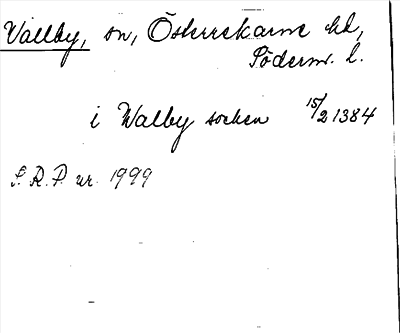 Vallby, sn, Österrekarne hd,
Söderm. l.
i Walby socken 15/2 1384
S. R. P. nr. 1999